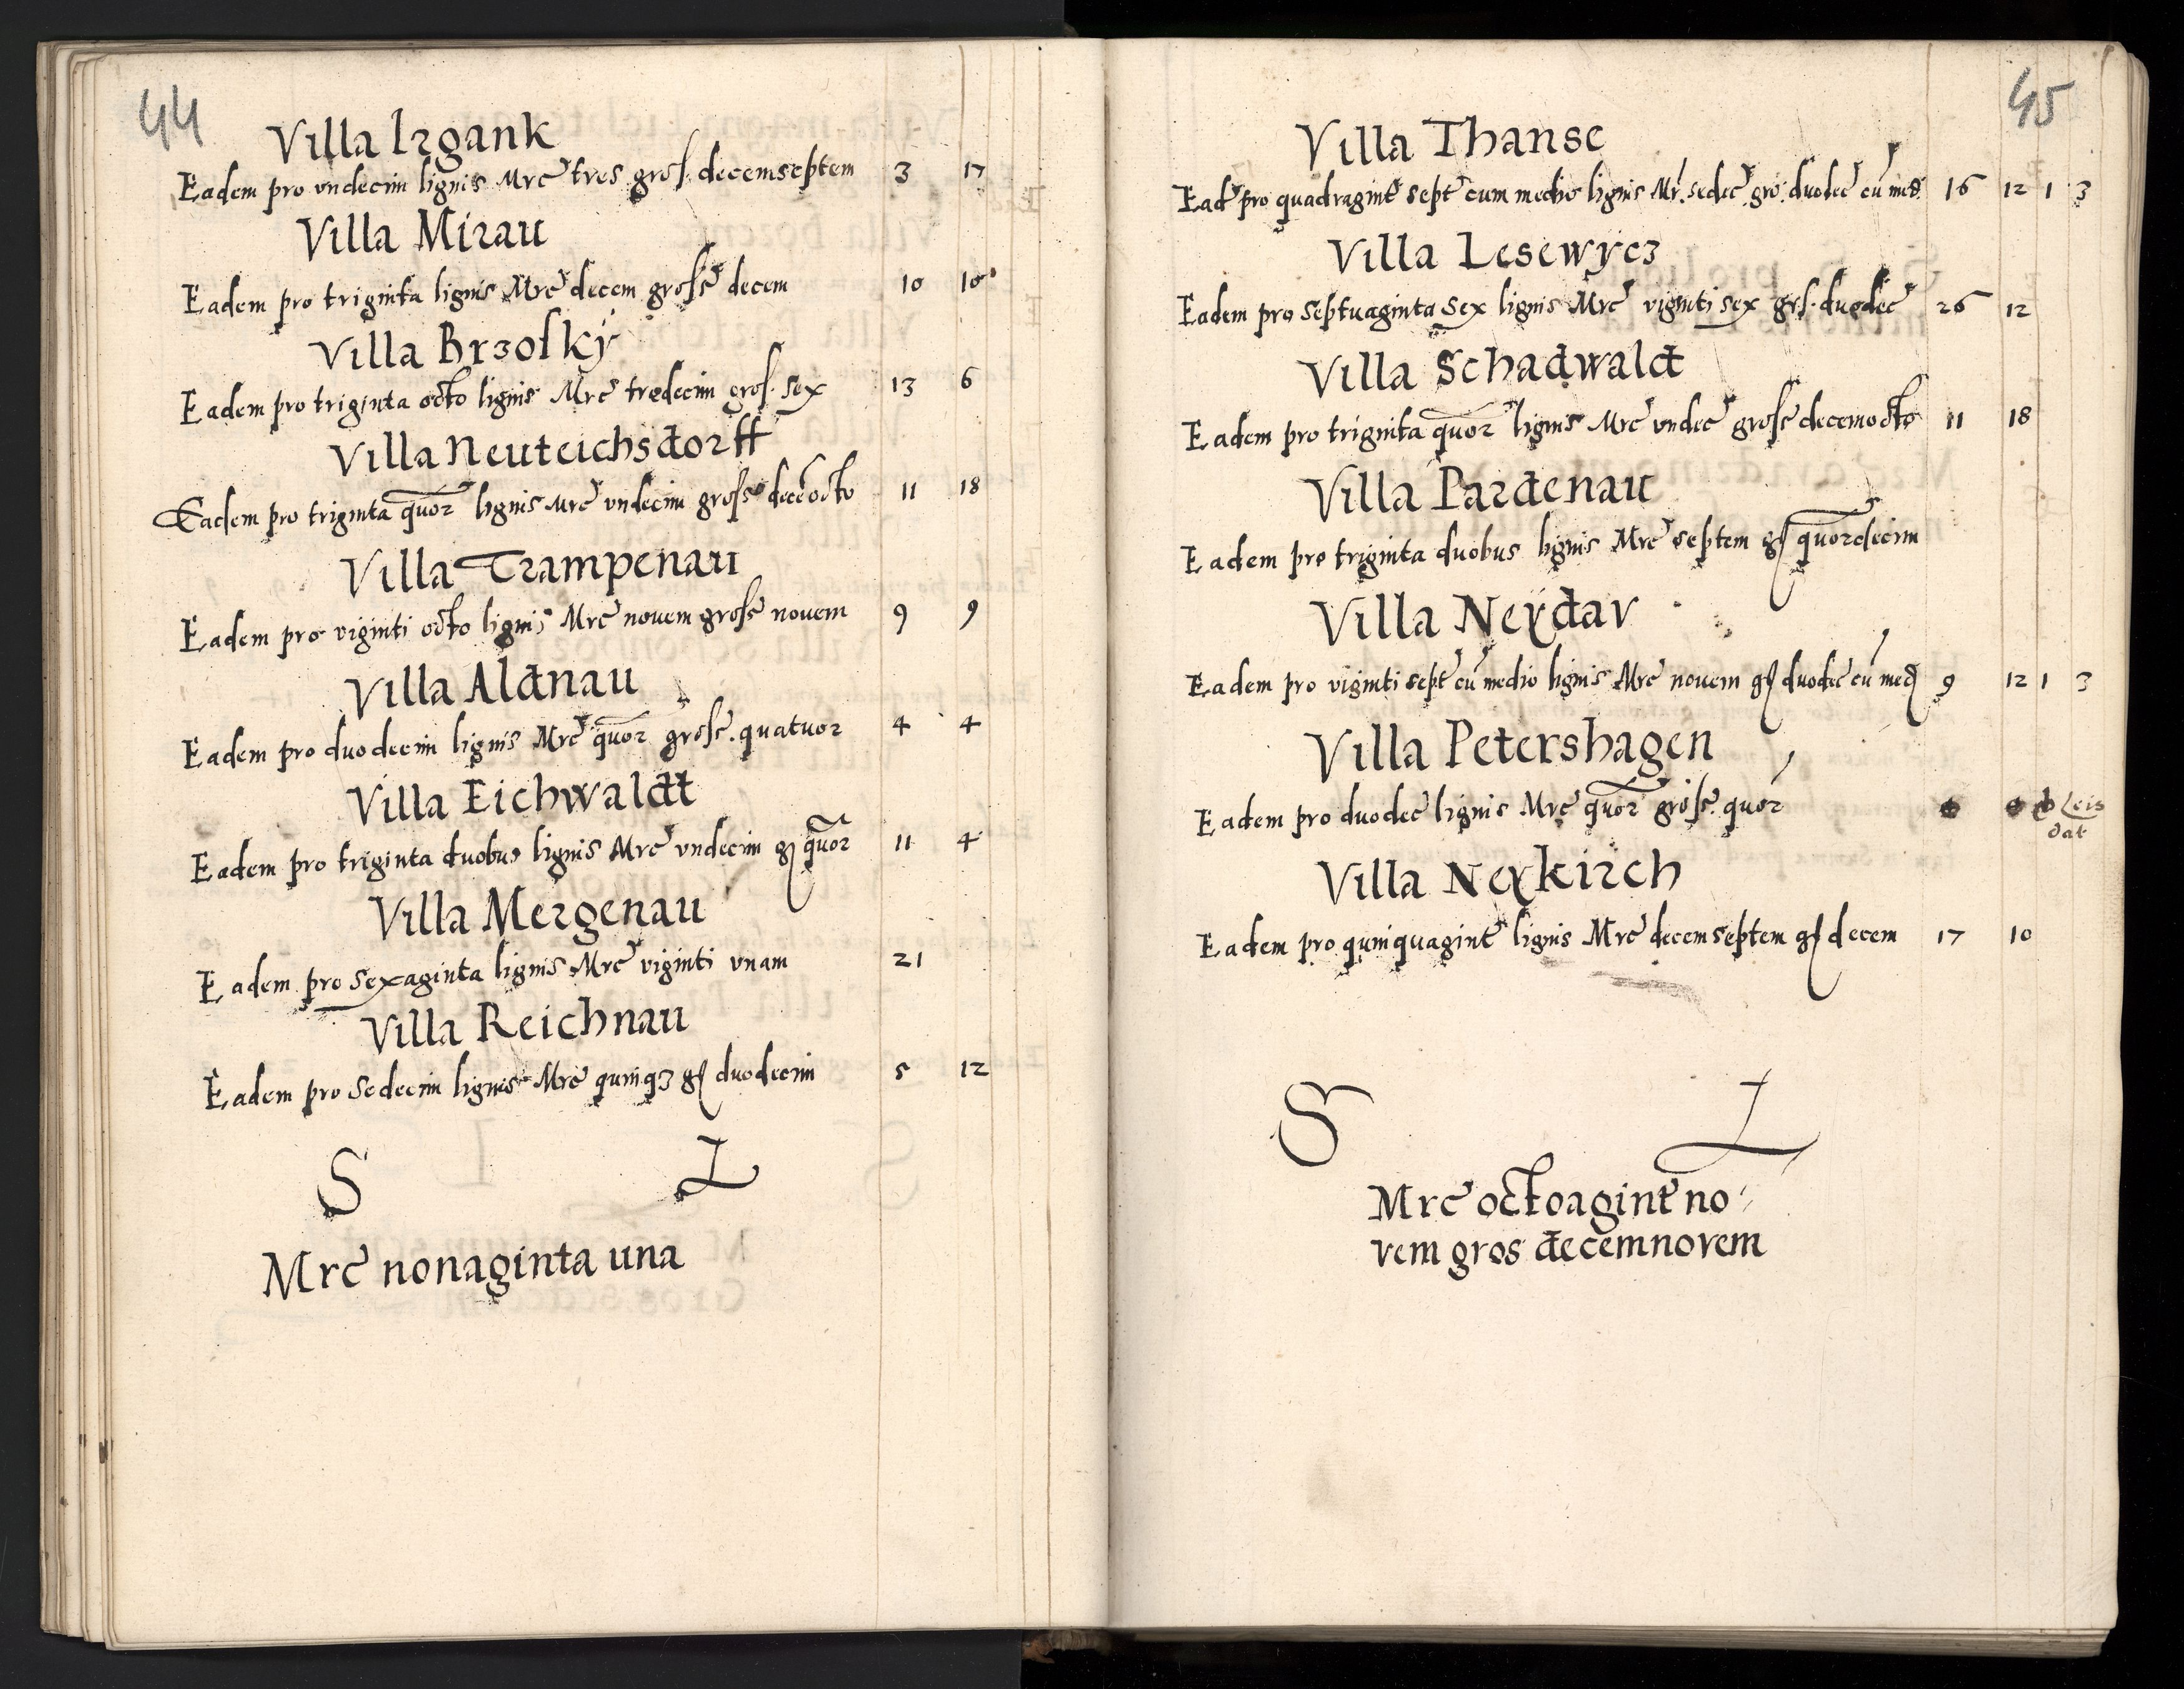 44
Villa Irgank
Eadem pro vndecim lignis Mrc tres gros. decemseptem 3 17
Villa Mirau
Eadem pro triginta lignis Mrc decem grosse decem 10 10
Villa Brzosky
Eadem pro triginta octo lignis Mrc tredecim gros. sex 13 6
Villa Neuteichsdorff
Eadem pro triginta quor lignis Mrc vndecim grosse decēocto 11 18
Villa Trampenau
Eadem pro viginti octo lignis Mrc novem grosse novem 9 9
Villa Aldnau
Eadem pro duodecim lignis Mrc quor grosse. quatuor 4 4
Villa Eichwaldt
Eadem pro triginta duobus lignis Mrc vndecim gʃ quor 11 4
Villa Mergenau
Eadem pro sexaginta lignis Mrc viginti vnam 21
Villa Reichnau
Eadem pro sedecim lignis Mrc quinqꝫ gʃ duodecim 5 12
S L
Mrc nonaginta una
45
Villa Thanse
Ead pro quadragint sept cum medio lignis Mr. sedec gro. duodec cū med 16 12 1 3
Villa Lesewycz
Eadem pro septuaginta sex lignis Mrc viginti sex grs. duodec 26 12
Villa Schadwald
Eadem pro triginta quor lignis Mrc vndec grosse decemocto 11 18
Villa Pardenau
Eadem pro triginta duobus lignis Mrc septem gʃ quordecim
Villa Neÿdav
Eadem pro viginti sept cū medio lignis Mrc novem gʃ duodec cū med 9 12 1 3
Villa Petershagen
Eadem pro duodec lignis Mrc quor grosse. quor
dat
Villa Neykirch
Eadem pro quinquagint lignis Mrc decemseptem gʃ decem 17 10
S L
Mrc octoagint no
vem gros decemnovem